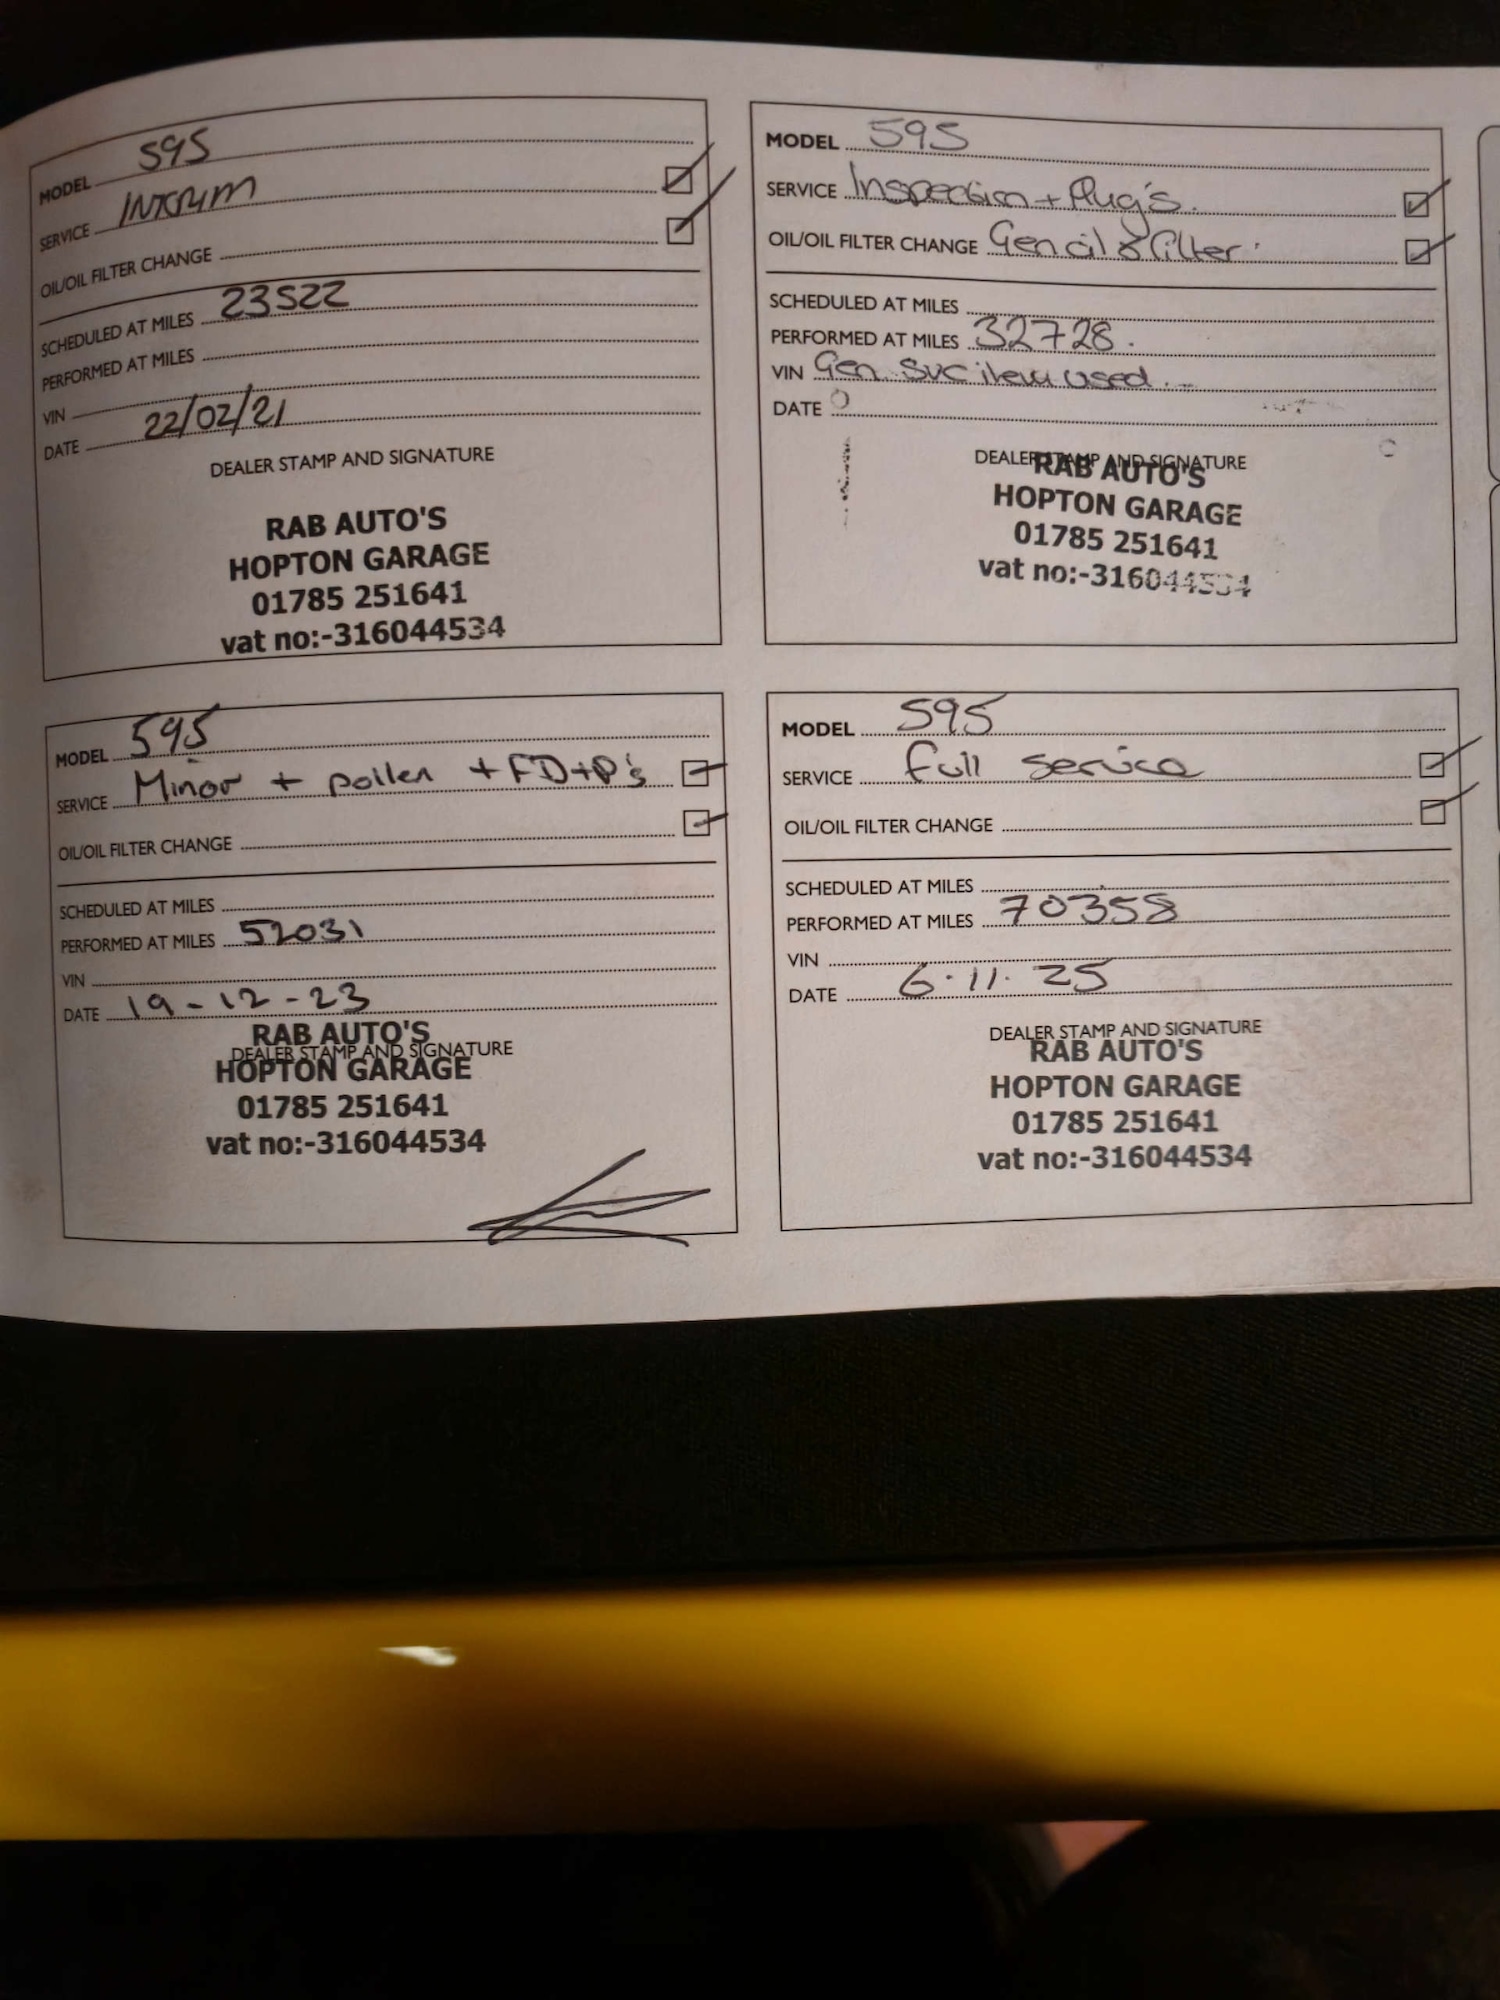 MODEL 595
SERVICE INTERIM
OIL/OIL FILTER CHANGE
SCHEDULED AT MILES 23522
PERFORMED AT MILES
VIN
DATE 22/02/21
DEALER STAMP AND SIGNATURE
RAB AUTO'S
HOPTON GARAGE
01785 251641
vat no:-316044534
MODEL 595
SERVICE Inspection + Plug's.
OIL/OIL FILTER CHANGE Gen oil & filter.
SCHEDULED AT MILES
PERFORMED AT MILES 32728.
VIN Gen svc item used.
DATE
DEALER STAMP AND SIGNATURE
RAB AUTO'S
HOPTON GARAGE
01785 251641
vat no:-316044534
MODEL 595
SERVICE Minor + pollen + FD+P's
OIL/OIL FILTER CHANGE
SCHEDULED AT MILES
PERFORMED AT MILES 52031
VIN
DATE 19-12-23
DEALER STAMP AND SIGNATURE
RAB AUTO'S
HOPTON GARAGE
01785 251641
vat no:-316044534
MODEL 595
SERVICE full service
OIL/OIL FILTER CHANGE
SCHEDULED AT MILES
PERFORMED AT MILES 70358
VIN
DATE 6.11.25
DEALER STAMP AND SIGNATURE
RAB AUTO'S
HOPTON GARAGE
01785 251641
vat no:-316044534